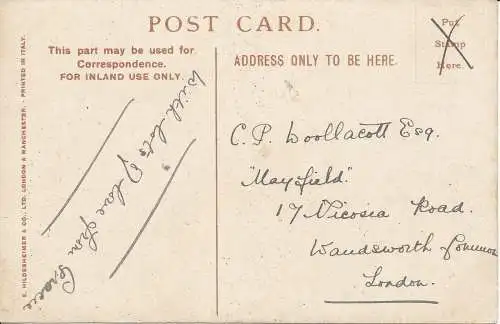 POST CARD.
This part may be used for
Correspondence.
FOR INLAND USE ONLY.
ADDRESS ONLY TO BE HERE.
Put
Stamp
Here.
E. HILDESHEIMER & CO., LTD. LONDON & MANCHESTER. - PRINTED IN ITALY.
With lots of love from Gracie
C. P. Woollacott Esq.
"Mayfield."
17 Nicosia Road.
Wandsworth Common
London.